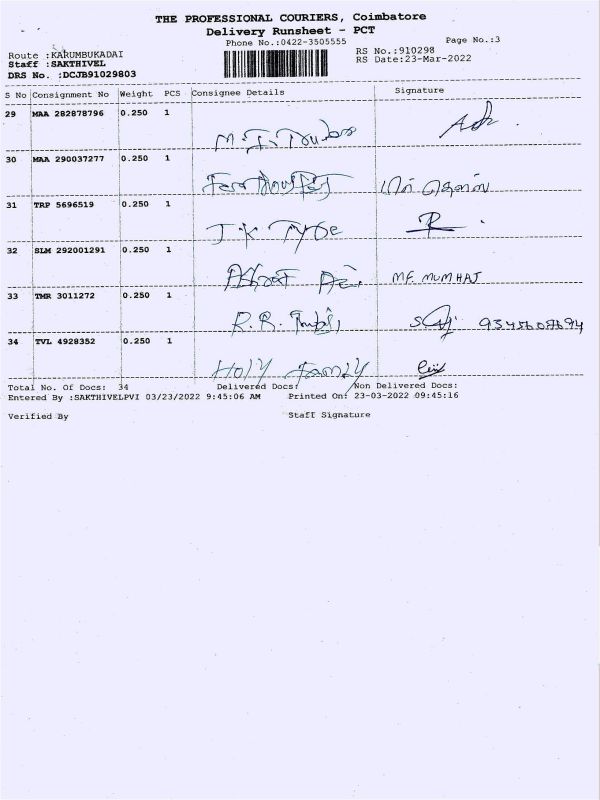 THE PROFESSIONAL COURIERS, Coimbatore
Delivery Runsheet - PCT
Phone No.:0422-3505555
Page No.:3
Route :KARUMBUKADAI
Staff :SAKTHIVEL
DRS No. :DCJB91029803
RS No.:910298
RS Date:23-Mar-2022
S No Consignment No Weight PCS Consignee Details Signature
29 MAA 282878796 0.250 1
30 MAA 290037277 0.250 1
31 TRP 5696519 0.250 1
J.K
32 SLM 292001291 0.250 1
MF. MUMHAJ
33 TMR 3011272 0.250 1
R.R.
34 TVL 4928352 0.250 1
HOLY FAMILY
Total No. Of Docs: 34 Delivered Docs: Non Delivered Docs:
Entered By :SAKTHIVELPVI 03/23/2022 9:45:06 AM Printed On: 23-03-2022 09:45:16
Verified By Staff Signature